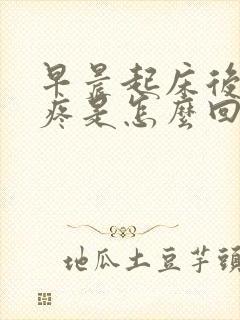 早晨起床後
疼是怎麼回
地瓜土豆芋頭